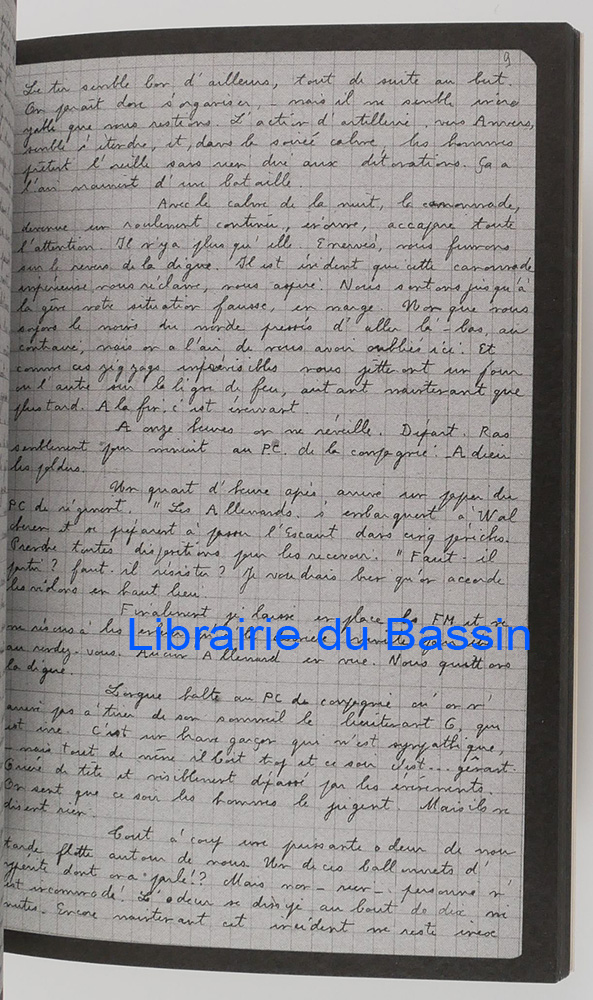 9
Le tir semble bon d'ailleurs, tout de suite au but.
On paraît donc s'organiser, - mais il me semble incro
yable que nous restions. L'action d'artillerie, vers Anvers,
semble s'étendre, et, dans la soirée calme, les hommes
prêtent l'oreille sans rien dire aux détonations. Ça a
l'air vraiment d'une bataille.
Avec le calme de la nuit, la canonnade,
devenue un roulement continu, énorme, accapare toute
l'attention. Il n'y a plus qu'elle. Enervés, nous fumons
sur le revers de la digue. Il est évident que cette canonnade
impérieuse nous réclame, nous aspire. Nous sentons jusqu'à
la gêne notre situation fausse, en marge. Non que nous
soyons le moins du monde pressés d'aller là-bas, au
contraire, mais on a l'air de nous avoir oubliés ici. Et
comme ces zigzags nous jetteront un jour
ou l'autre sur la ligne de feu, autant maintenant que
plus tard. A la fin, c'est énervant.
A onze heures on me réveille. Départ. Ras
semblement pour minuit au P.C. de la compagnie. Adieu
les poldus.
Un quart d'heure après arrive un papier du
PC de régiment. "Les Allemands s'embarquent à Wal
cheren et se préparent à passer l'Escaut dans cinq péniches.
Prendre toutes dispositions pour les recevoir." Faut-il
partir? faut-il résister? Je voudrais bien qu'on accorde
les violons en haut lieu.
Finalement je laisse en place les FM et je
me résous à les
au rendez-vous. Aucun Allemand en vue. Nous quittons
la digue.
Longue halte au PC de compagnie où on n'
arrive pas à tirer de son sommeil le lieutenant G, qui
est ivre. C'est un brave garçon qui m'est sympathique,
- mais tout de même il boit trop et ce soir c'est... gênant.
de tête et visiblement dépassé par les événements.
On sent que ce soir les hommes le jugent. Mais ils ne
disent rien.
Tout à coup une puissante odeur de mou
tarde flotte autour de nous. Un de ces ballonnets d'
ypérite dont on a parlé!? Mais non - rien - personne n'
est incommodé. L'odeur se dissipe au bout de dix mi
nutes. Encore maintenant cet incident me reste inex
Librairie du Bassin